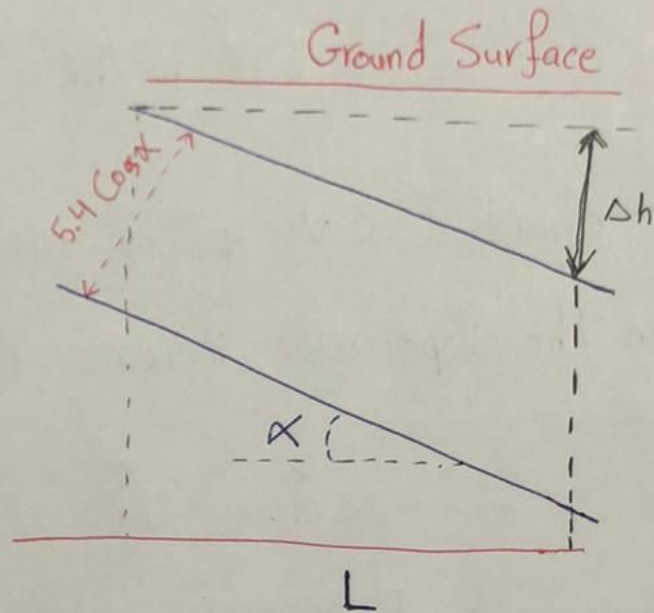 Ground Surface
5.4 Cos α
Δh
α
L